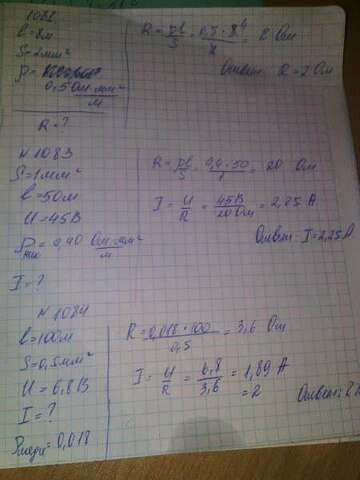 1082
l=8м
S=2мм²
ρ=
0,5 Ом·мм²/м
R=?
R=ρl/S=0,5·8⁴/2=2 Ом
Ответ: R=2 Ом
N 1083
S=1мм²
l=50м
U=45В
ρник=0,40 Ом·мм²/м
I=?
R=ρl/S=0,4·50/1=20 Ом
I=U/R=45В/20Ом=2,25 А
Ответ: I=2,25А
N 1084
l=100м
S=0,5мм²
U=6,8В
I=?
ρмеди=0,018
R=0,018·100/0,5=3,6 Ом
I=U/R=6,8/3,6=1,89 А
=2
Ответ: